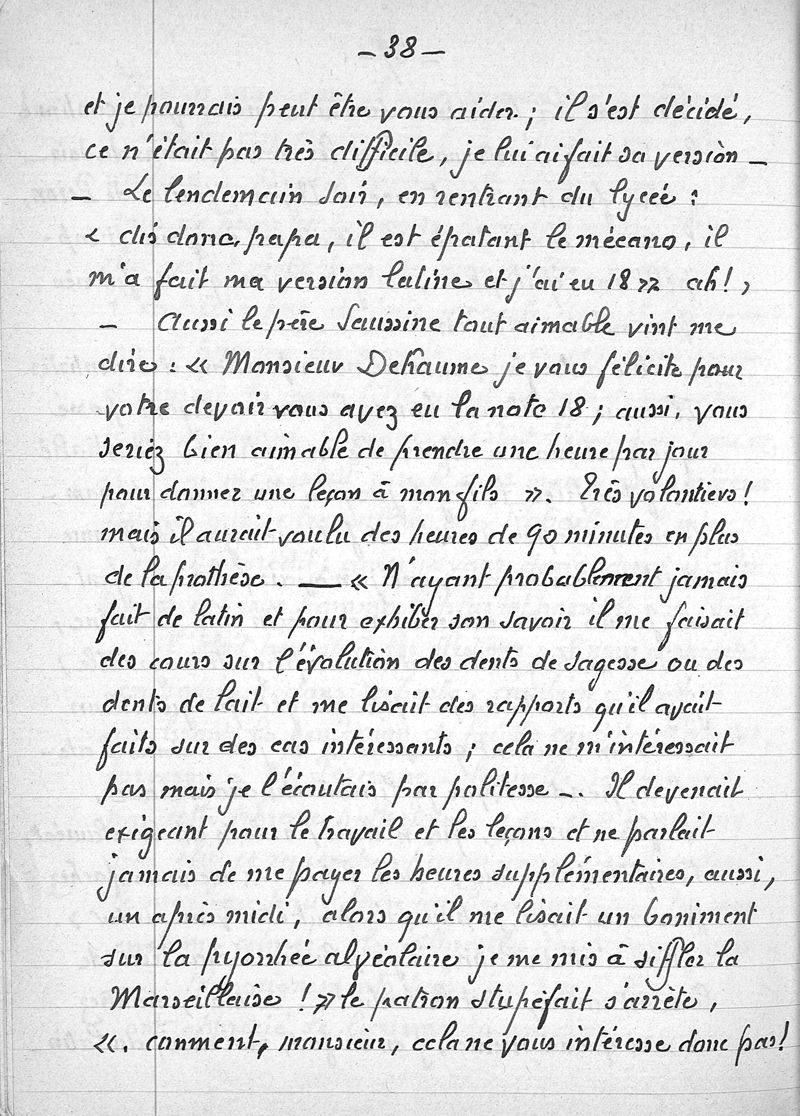 — 38 —
et je pourrais peut être vous aider. ; il s'est décidé,
ce n'était pas très difficile, je lui ai fait sa version —
— Le lendemain soir, en rentrant du lyceé :
« dis donc, papa, il est épatant le mécano, il
m'a fait ma version latine et j'ai eu 18 » ah! ,
— Aussi le père Saussine tout aimable vint me
dire : « Monsieur Dehaume je vous félicite pour
votre devoir vous avez eu la note 18 ; aussi, vous
seriez bien aimable de prendre une heure par jour
pour donner une leçon à mon fils ». Très volontiers !
mais il aurait voulu des heures de 90 minutes en plus
de la prothèse. — « N'ayant probablement jamais
fait de latin et pour exhiber son savoir il me faisait
des cours sur l'évolution des dents de sagesse ou des
dents de lait et me lisait des rapports qu'il avait
faits sur des cas intéressants ; cela ne m'intéressait
pas mais je l'écoutais par politesse —. Il devenait
exigeant pour le travail et les leçons et ne parlait
jamais de me payer les heures supplémentaires, aussi,
un après midi, alors qu'il me lisait un boniment
sur la pyorrheé alvéolaire je me mis à siffler la
Marseillaise ! » le patron stupéfait s'arrète,
«. comment, monsieur, cela ne vous intéresse donc pas!